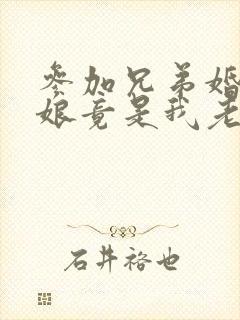 参加兄弟婚
娘竟是我老
石井裕也